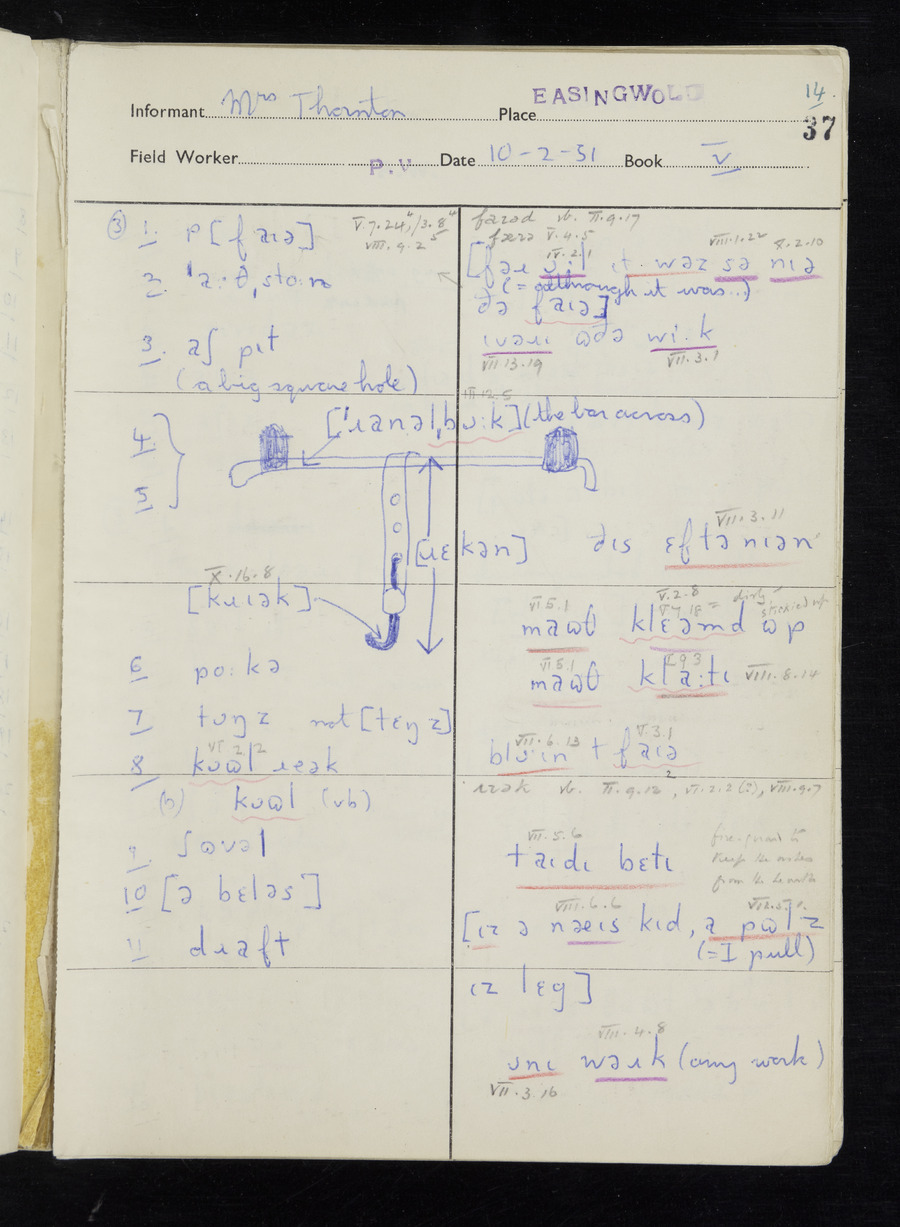 EASINGWOLD
14.
Informant Mrs Thornton Place
37
Field Worker P.V Date 10-2-51 Book V
③ 1. p [faɪə]
V.7.24, /3.8
VIII.9.2
2. 'a:θˌsto:n
3. aʃ pɪt
(a big square hole)
4
5
['ɹanəlˌbʊ:k] (the bar across)
III.12.5
[ɹɛkən]
X.16.8
[kɹɪək]
6 po:kə
7 tʊŋz not [tɛŋz]
VI 2 2
8 kʊɷl ɹɛək
(b) kʊɷl (vb)
9. ʃɷvəl
10 [ə bɛləs]
11 dɹaft
vb. II.9.17
V.4.5
IV.2.1
VIII.1.22 X.2.10
ɪt waz sə nɪə
(= although it was..)
ðə faɪə]
ɪvəɹɪ ɷðə wi:k
VII 13.19 VII.3.1
VII.3.11
ðɪs ɛftənɪən
VI 5.1 V.2.8 = dirty
V 7.18 stickied up
maɷθ klɛəmd ɷp
VI.5.1
maɷθ kla:tɪ VIII.8.14
VII.6.13 V.3.1
blʊ:ɪn t faɪə
vb. II.9.12, VI.2.2(2), VIII.9.7
VII.5.6
taɪdɪ bɛtɪ
fire-guard to
keep the ashes
from the hearth
VIII.6.6
[ɪz ə naɛɪs kɪd, a pɷlz
(= I pull)
ɪz lɛg]
VIII.4.8
ʊnɪ waɹk (any work)
VII.3.16